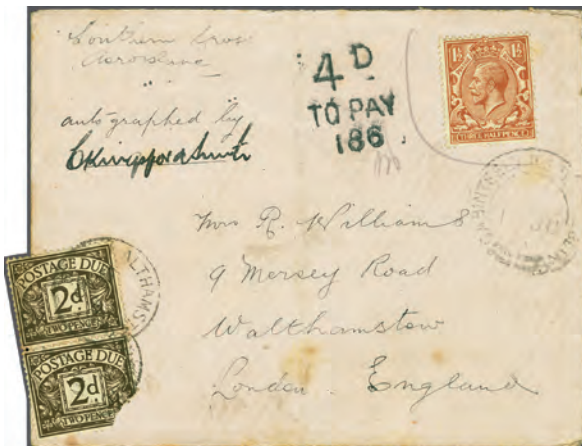 Southern Cross
Aeroplane
autographed by
CKingsfordSmith
4D
TO PAY
186
1½ 1½
THREE HALF PENCE
Mrs R. Williams
9 Mersey Road
Walthamstow
London. England
POSTAGE DUE
2d
TWO PENCE
ALTHAMS
POSTAGE DUE
2d
TWO PENCE